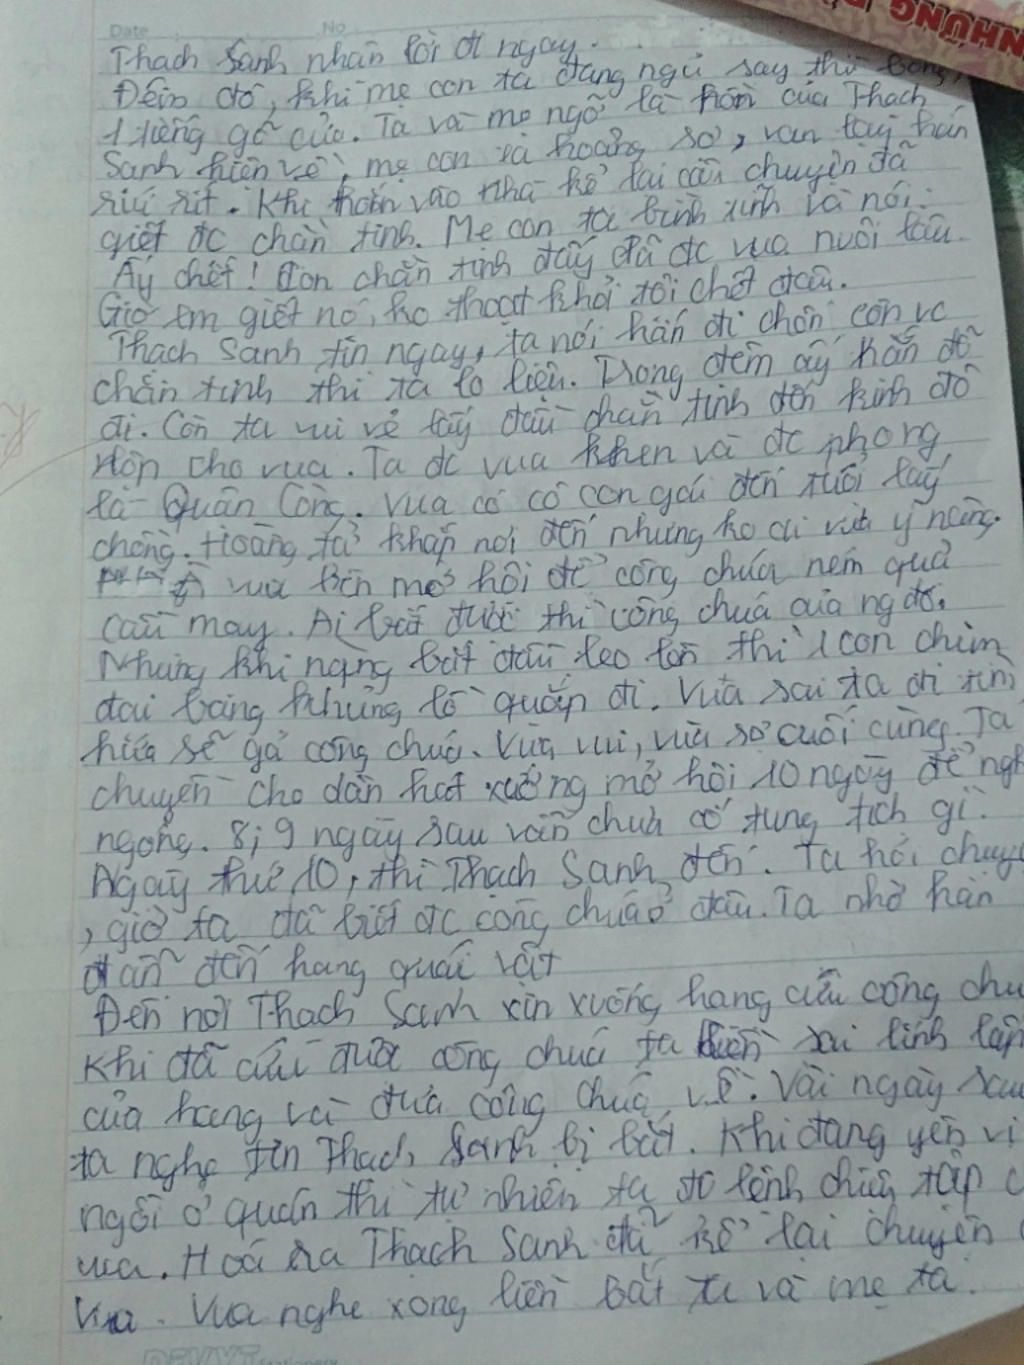 NHỮNG
Date No
Thạch Sanh nhận lời đi ngay.
Đêm đó, khi mẹ con ta đang ngủ say thì bỗng
1 tiếng gõ cửa. Ta và mẹ ngỡ là hồn của Thạch
Sanh hiện về, mẹ con ta hoảng sợ, van lạy hắn
ríu rít. Khi hắn vào nhà kể lại câu chuyện đã
giết đc chằn tinh. Mẹ con ta bình tĩnh và nói:
Ấy chết! Con chằn tinh đấy đã đc vua nuôi lâu.
Giờ em giết nó, ko thoát khỏi tội chết đâu.
Thạch Sanh tin ngay, ta nói hắn đi chốn còn vc
chằn tinh thì ta lo liệu. Trong đêm ấy hắn đã
đi. Còn ta vui vẻ lấy đầu chằn tinh đến kinh đô
nộp cho vua. Ta đc vua khen và đc phong
là Quận Công. Vua có cô con gái đến tuổi lấy
chồng. Hoàng tử khắp nơi đến nhưng ko ai vừa ý nàng.
vua liền mở hội để công chúa ném quả
cầu may. Ai bắt được thì công chúa của ng đó.
Nhưng khi nàng bắt đầu leo lên thì 1 con chim
đại bàng khổng lồ quắp đi. Vua sai ta đi tìm
hứa sẽ gả công chúa. Vừa vui, vừa sợ cuối cùng. Ta
chuyền cho dân hát xướng mở hội 10 ngày để ngh
ngóng. 8; 9 ngày sau vẫn chưa có tung tích gì.
Ngày thứ 10, thì Thạch Sanh đến. Ta hỏi chuyệ
, giờ ta đã biết đc công chúa ở đâu. Ta nhờ hắn
dẫn đến hang quái vật
Đến nơi Thạch Sanh xin xuống hang cứu công chú
Khi đã cứu được công chúa ta liền sai lính lấp
cửa hang và đưa công chúa về. Vài ngày sau
ta nghe tin Thạch Sanh bị bắt. Khi đang yên vị
ngồi ở quán thì tự nhiên ta có lệnh chiêu tập c
vua. Hoá ra Thạch Sanh đã kể lại chuyện
vua. Vua nghe xong liền bắt ta và mẹ ta.